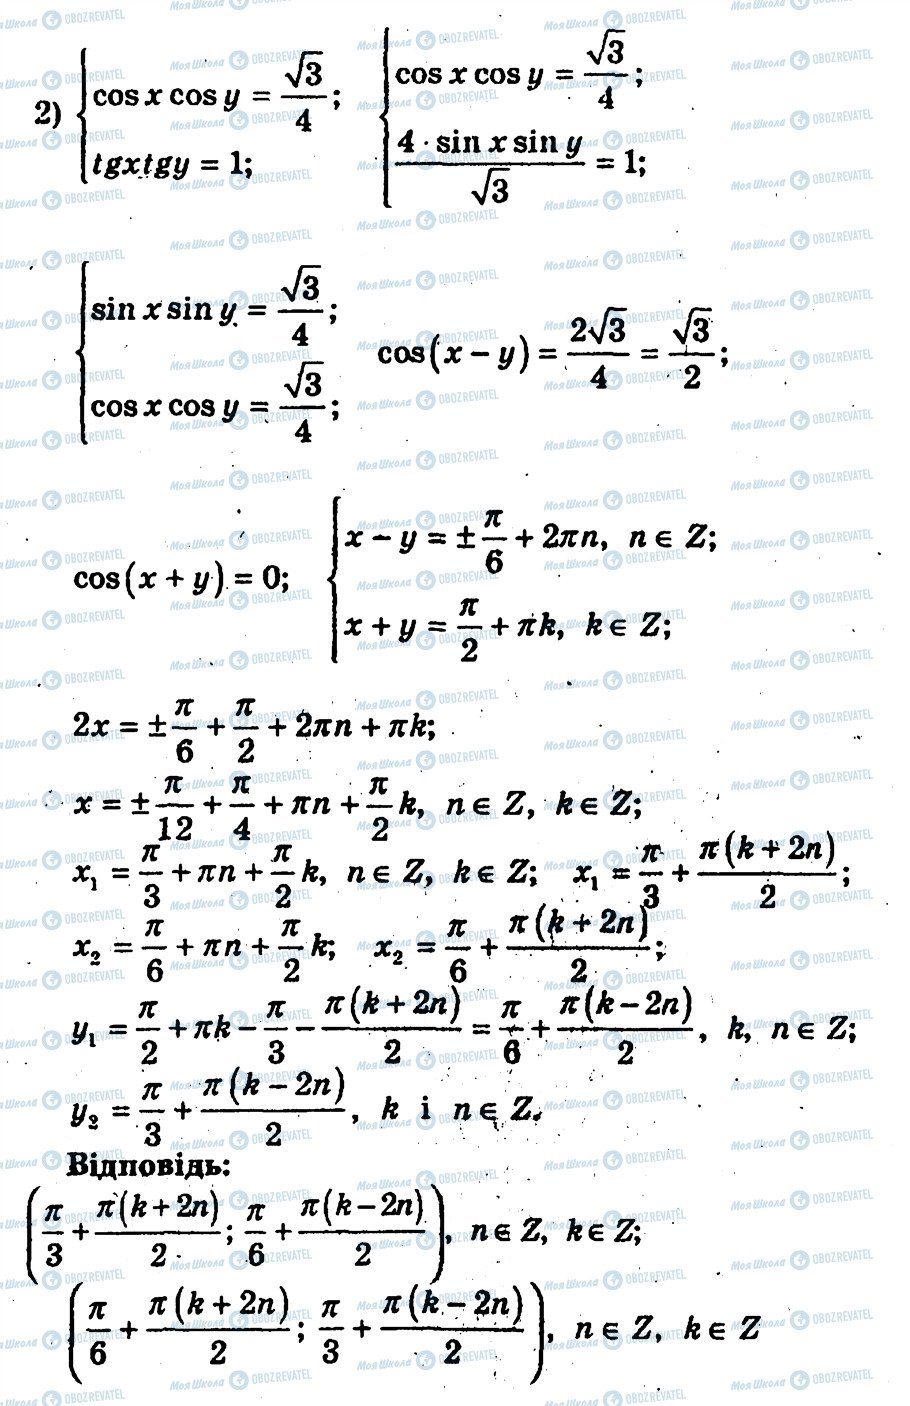 2) { cos x cos y = √3/4; { cos x cos y = √3/4;
tgxtgy = 1; 4 · sin x sin y / √3 = 1;
{ sin x sin y = √3/4; cos(x − y) = 2√3/4 = √3/2;
cos x cos y = √3/4;
cos(x + y) = 0; { x − y = ±π/6 + 2πn, n ∈ Z;
x + y = π/2 + πk, k ∈ Z;
2x = ±π/6 + π/2 + 2πn + πk;
x = ±π/12 + π/4 + πn + π/2 k, n ∈ Z, k ∈ Z;
x₁ = π/3 + πn + π/2 k, n ∈ Z, k ∈ Z; x₁ = π/3 + π(k + 2n)/2;
x₂ = π/6 + πn + π/2 k; x₂ = π/6 + π(k + 2n)/2;
y₁ = π/2 + πk − π/3 − π(k + 2n)/2 = π/6 + π(k − 2n)/2, k, n ∈ Z;
y₂ = π/3 + π(k − 2n)/2, k і n ∈ Z.
Відповідь:
(π/3 + π(k + 2n)/2; π/6 + π(k − 2n)/2), n ∈ Z, k ∈ Z;
(π/6 + π(k + 2n)/2; π/3 + π(k − 2n)/2), n ∈ Z, k ∈ Z
МояШкола OBOZREVATEL